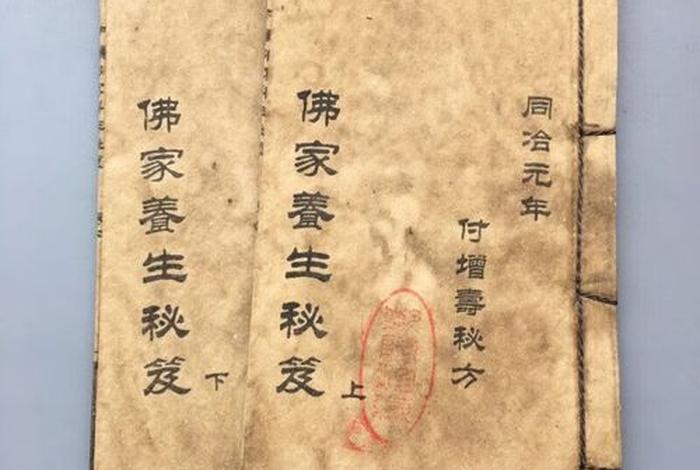 同冶元年
付增壽秘方
佛家養生秘笈 上
佛家養生秘笈 下